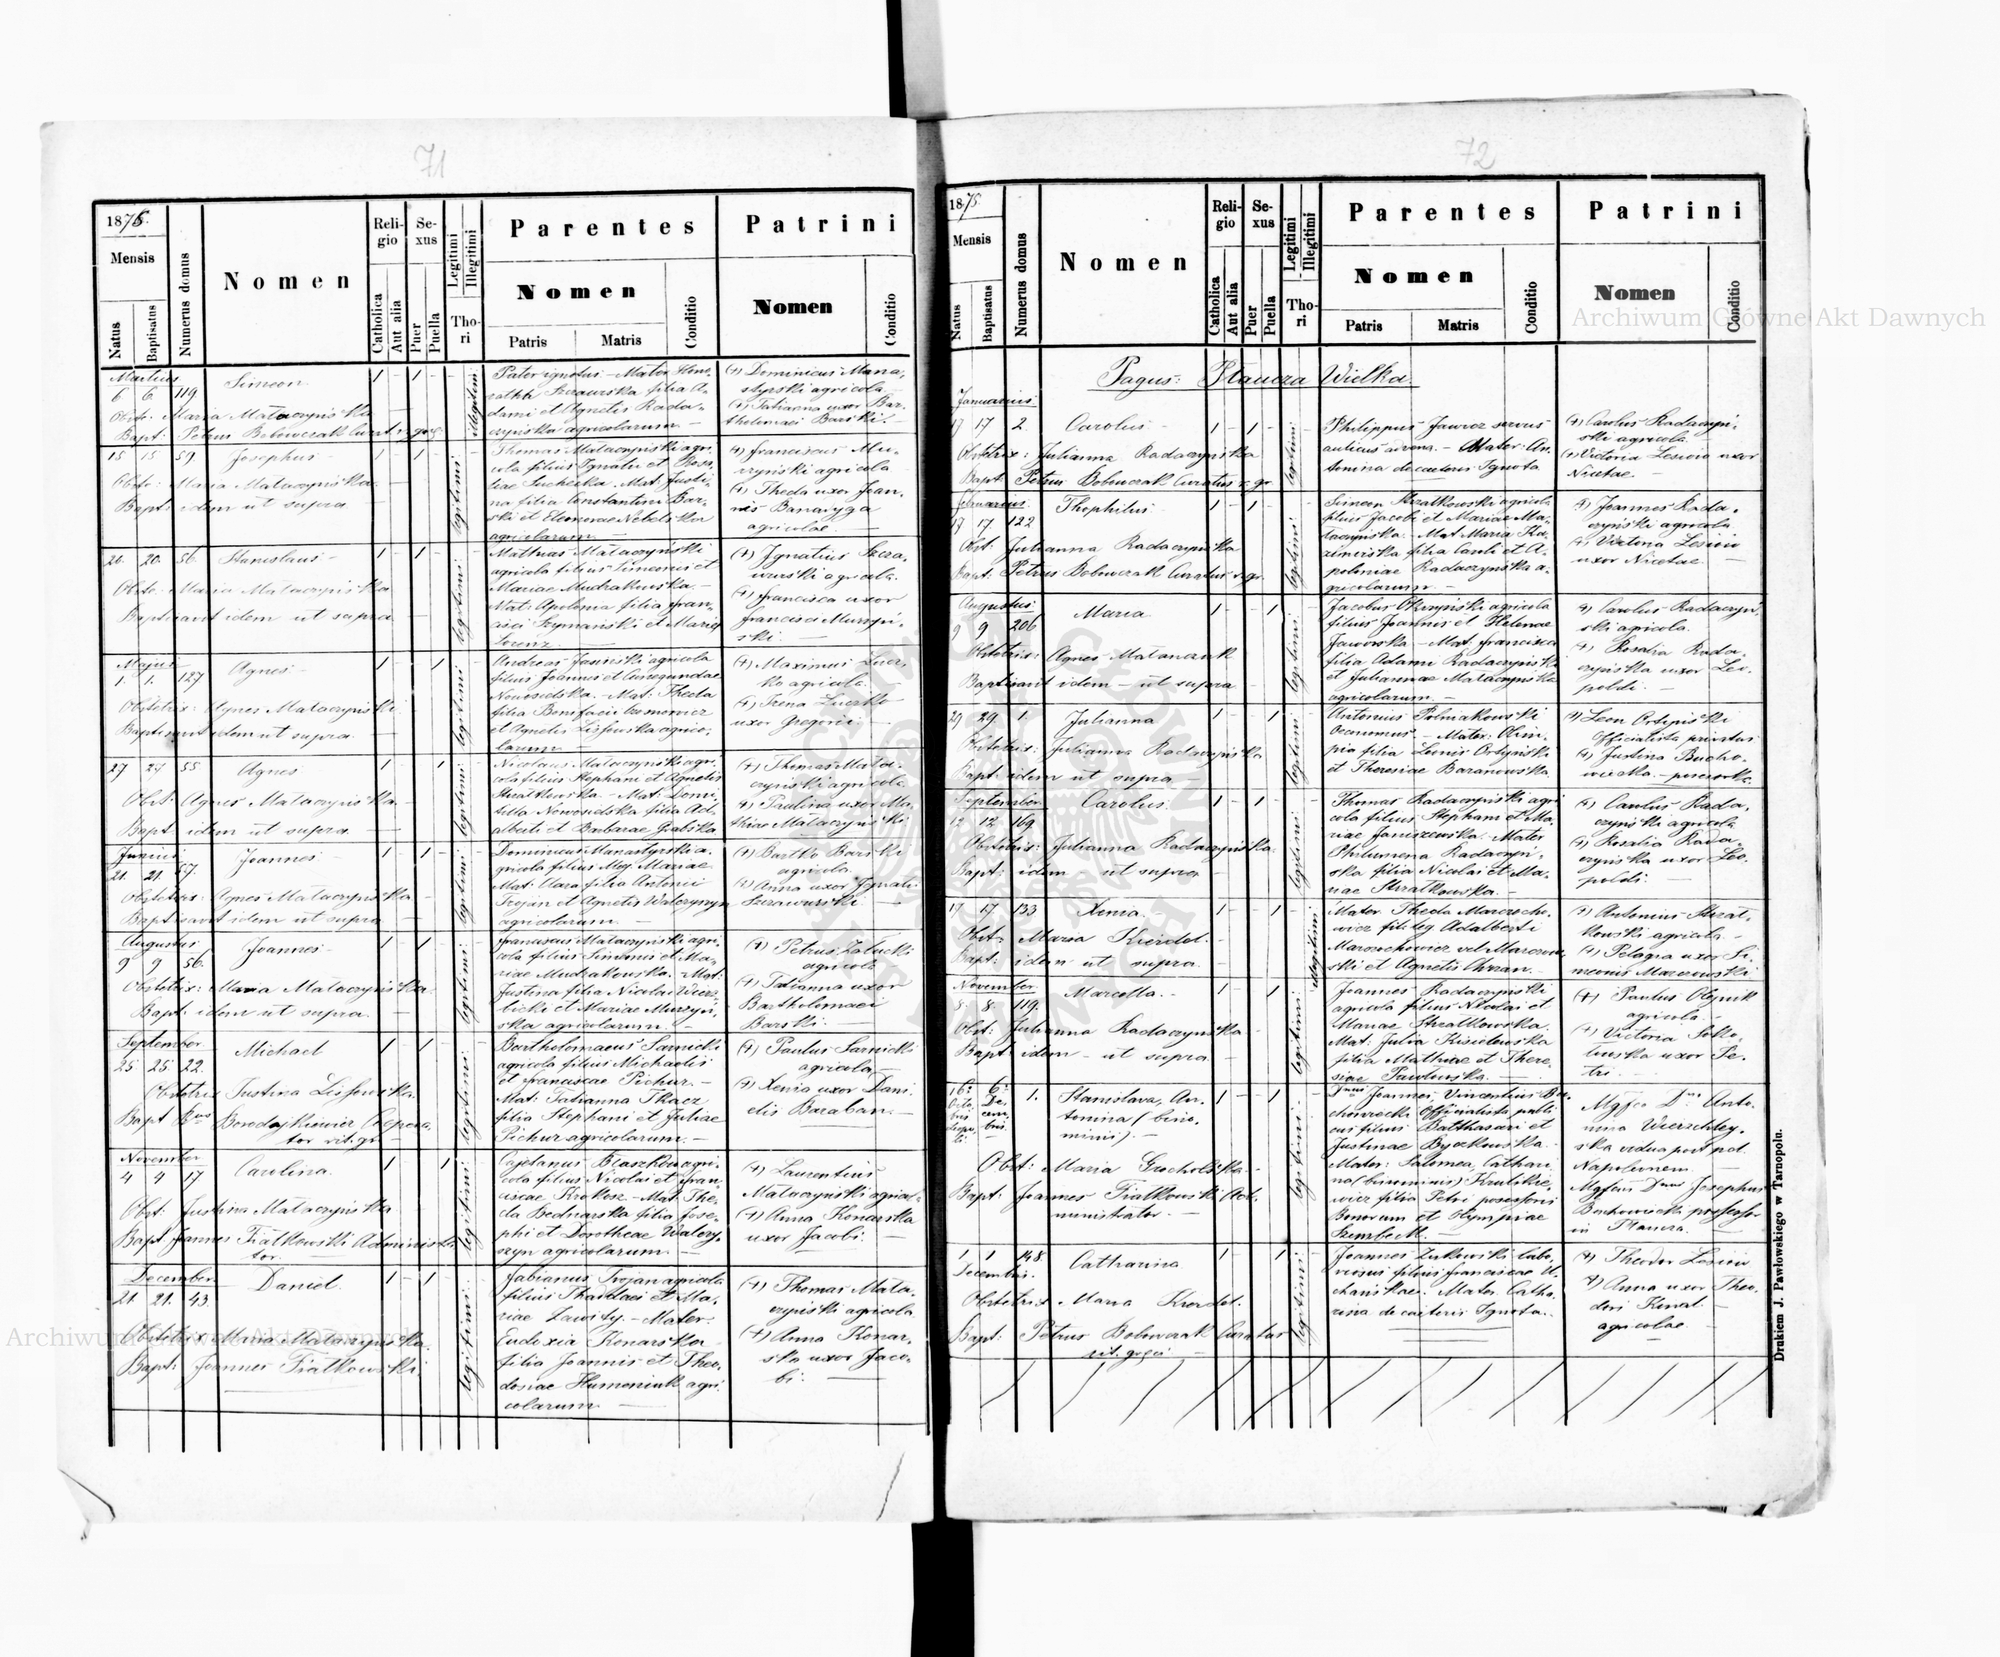 71
1875.
Mensis
Natus
Baptisatus
Numerus domus
Nomen
Religio
Catholica
Aut alia
Sexus
Puer
Puella
Legitimi
Illegitimi
Thori
Parentes
Nomen
Patris
Matris
Conditio
Patrini
Nomen
Conditio
Martius
6 6. 119
Simeon.
Obstr: Maria Mataczyńska
Bapt: Petrus Bobowczak Curat. r. gr.
illegitimi
Pater ignotus - Mater
filia A-
dami et Agnetis Rada-
czyńska agricolarum. -
(+) Dominicus Mana,
styrski agricola
(+) Tatianna uxor Bar-
tholomaei Barski. -
15 15 59
Josephus -
Obstr: Maria Mataczyńska.
Bapt: idem ut supra
legitimi
Thomas Mataczyński agri-
cola filius Ignatii et
Mat. Justi-
na filia Constantini Bar-
ski et Eleonorae Nebelska
agricolarum -
(+) Franciscus Mu-
rzyński agricola
(+) Theda uxor Joan-
nis Banaryga
agricolae. -
20. 20. 56.
Stanislaus -
Obstr: Maria Mataczyńska
Baptisavit idem ut supra
legitimi
Mathias Mataczyński
agricola filius Simeonis et
Mariae Mudrakowska. -
Mat: Apolonia filia Fran-
cisci Szymański et Mariae
Lorenz. -
(+) Ignatius Szcza-
wurski agricola.
(+) Francisca uxor
Francisci Murzyń-
ski. -
Majus
1. 1. 127
Agnes -
Obstetrix: Agnes Mataczyński
Baptisavit idem ut supra. -
legitimi
Andreas Jasiński agricola
filius Joannis et Cunegundae
Nowosielska. - Mat: Theda
filia Bonifacii
et Agnetis Lisowska agrico-
larum -
(+) Maximus Lucz-
ko agricola.
(+) Irena Luczko
uxor Gregorii. -
27 27 55
Agnes
Obst: Agnes Mataczyńska.
Bapt: idem ut supra.
legitimi
Nicolaus Mataczyński agri-
cola filius Stephani et Agnetis
Strzałkowska. - Mat: Domi-
tilla Nowosielska filia Ad-
alberti et Barbarae
(+) Thomas Mata-
czyński agricola
(+) Paulina uxor Ma-
thiae Mataczyński
Junius
21. 21. 57.
Joannes -
Obstetrix: Agnes Mataczyńska
Baptisavit idem ut supra
legitimi
Dominicus Manastyrski a-
gricola filius Mariae
Mat: Clara filia Antonii
Trojan et Agnetis
agricolarum. -
(+) Bartko Barski
agricola.
(+) Anna uxor Ignatii
Szczawurski
Augustus
9 9 56.
Joannes -
Obstetrix: Maria Mataczyńska.
Bapt: idem ut supra.
legitimi
Franciscus Mataczyński agri-
cola filius Simeonis et Ma-
riae Mudrakowska. - Mat:
Justina filia Nicolai Wierz-
bicki et Mariae Murzyń-
ska agricolarum. -
(+) Petrus Załucki
agricola
(+) Tatianna uxor
Bartholomaei
Barski. -
September
25 25. 22.
Michael
Obstetrix Justina Lisowska.
Coopera-
tor rit. gr.
legitimi
Bartholomaeus Sarnicki
agricola filius Michaelis
et Franciscae Pichur. -
Mat: Tatianna Tkacz
filia Stephani et Juliae
Pichur agricolarum. -
(+) Paulus Sarnicki
agricola -
(+) Xenia uxor Dani-
elis Baraban. -
November
4 4 17
Carolina.
Obst: Justina Mataczyńska
Bapt: Joannes Fiałkowski Administra-
tor.
legitimi
Cajetanus Błaszków agri-
cola filius Nicolai et Fran-
ciscae Krokosz - Mat: The-
da Bednarska filia Jose-
phi et Dorotheae Walczy-
szyn agricolarum -
(+) Laurentius
Mataczyński agricol-
(+) Anna Konarska
uxor Jacobi. -
December
21. 21. 43.
Daniel.
Obstetrix Maria Mataczyńska.
Bapt: Joannes Fiałkowski.
legitimi
Fabianus Trojan agricola
filius Thaddaei et Ma-
riae Zawity. - Mater:
Eudoxia Konarska
filia Joannis et Theo-
dosiae Humeniuk agri-
colarum -
(+) Thomas Mata-
czyński agricola
(+) Anna Konar-
ska uxor Jaco-
bi. -
72
1875
Mensis
Natus
Baptisatus
Numerus domus
Nomen
Religio
Catholica
Aut alia
Sexus
Puer
Puella
Legitimi
Illegitimi
Thori
Parentes
Nomen
Patris
Matris
Conditio
Patrini
Nomen
Conditio
Pagus: Płaucza Wielka.
Januarius
17 17 2.
Carolus -
Obstetrix: Julianna Radaczyńska
Bapt: Petrus Bobowczak Curatus r. gr.
legitimi
Philippus Jawicz servus
aulicus - Mater: An-
tonina de caeteris Ignota
(+) Carolus Radaczyń-
ski agricola.
(+) Victoria Lesiów uxor
Nicetae. -
Februarius
17 17. 122
Thophilus -
Obst: Julianna Radaczyńska
Bapt: Petrus Bobowczak Curatus r. gr.
legitimi
Simeon Strzałkowski agricola
filius Jacobi et Mariae Ma-
taczyńska. Mat Maria Ka-
zimirska filia Caroli et A-
poloniae Radaczyńska a-
gricolarum -
(+) Joannes Rada-
czyński agricola
(+) Victoria Lesiów
uxor Nicetae -
Augustus
9 9 206
Maria
Obstetrix: Agnes Matanczuk
Baptisavit idem - ut supra
legitimi
Jacobus agricola
filius Joannis et Helenae
Jaworska - Mat: Francisca
filia Adami Radaczyński
et Juliannae Mataczyńska
agricolarum. -
(+) Carolus Radaczyń-
ski agricola.
(+) Rosalia Rada-
czyńska uxor Leo-
poldi. -
29 29. 1.
Julianna
Obstetrix: Julianna Radaczyńska
Bapt: idem ut supra -
legitimi
Antonius Polniakowski
Oeconomus. - Mater: Olim-
pia filia Leonis Ortyński
et Theresiae Baranowska.
(+) Leon Ortyński
Officialista privatus
(+) Justina Bocho-
wiecka. -
September
12 12 169.
Carolus.
Obstetrix: Julianna Radaczyńska.
Bapt: idem - ut supra
legitimi
Thomas Radaczyński agri-
cola filius Stephani et Ma-
riae Janiszewska. Mater
Philumena Radaczyń-
ska filia Nicolai et Ma-
riae Strzałkowska. -
(+) Carolus Rada-
czyński agricola
(+) Rosalia Rada-
czyńska uxor Leo-
poldi. -
17 17 133
Xenia. -
Obst: Maria Kierdel.
Bapt: idem ut supra.
illegitimi
Mater Theda Marcecho-
wicz fil: leg Adalberti
Marcechowicz vel Marcew-
ski et Agnetis Chran. -
(+) Antonius Strzał-
kowski agricola -
(+) Pelagia uxor Si-
meonis Marcewski
November
8 8. 119.
Marcella. -
Obst: Julianna Radaczyńska
Bapt: idem - ut supra
legitimi
Joannes Radaczyński
agricola filius Nicolai et
Mariae Strzałkowska.
Mat: Julia Kisielewska
filia Mathiae et There-
siae Pawłowska. -
(+) Paulus Olejnik
agricola. -
(+) Victoria Soko-
łuska uxor Pe-
tri. -
16.
6.
Decembris
1.
Stanislava, An-
tonina (bino-
minis). -
Obst: Maria Grocholska. -
Bapt: Joannes Fiałkowski Ad-
ministrator. -
legitimi
Dnus Joannes, Vincentius Bo-
chowiecki Officialista publi-
cus filius Balthasari et
Justinae Byczkowska. -
Mater: Salomea, Cathari-
na (binominis) Krulikie-
wicz filia Petri possessoris
Bonorum et Olympiae
Szembek. -
Mgfca Dna Anto-
nina Wierzchley-
ska vidua post pd.
Napoleonem. -
Mgfcus Dnus Josephus
Bochowiecki possessor
in Płaucza. -
1 1 148.
Decembris.
Catharina
Obstetrix Maria Kierdel.
Bapt: Petrus Bobowczak Curatus
rit. graeci -
legitimi
Joannes Żukowski labo-
riosus filius Franciscae
Mater: Catha-
rina de caeteris Ignota. -
(+) Theodor Lesiów
(+) Anna uxor Theo-
dori
agricolae. -
Drukiem J. Pawłowskiego w Tarnopolu.
Archiwum Główne Akt Dawnych
Archiwum Główne Akt Dawnych